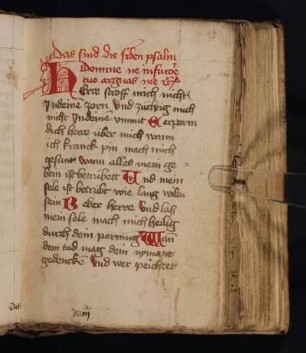 Das sind die siben psalm
Domine ne in furore
tuo arguas me
Herre stroff mich nicht
In deinem zorn Und zuchtig mich
nicht In deinem vnmut Erparm
dich herre uber mich wann
ich kranck pin mach mich
gesunt wann alles mein ge-
ben ist betrubett Und mein
sele ist betrubt wie lang wiltu
sein Beker herre Und las
mein sele mach mich heilig
durch dein parmung Wan
dem tod mag dein nymant
gedencken Und wer peichtet
xiij